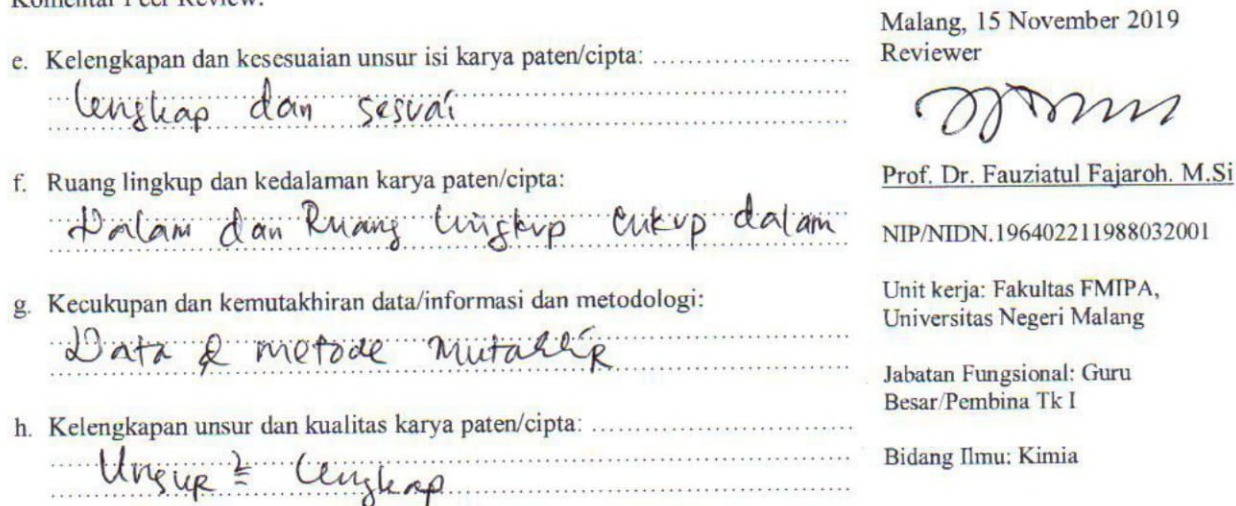 Komentar Peer Review:
e. Kelengkapan dan kesesuaian unsur isi karya paten/cipta: ......................
lengkap dan sesuai
f. Ruang lingkup dan kedalaman karya paten/cipta:
Dalam dan Ruang lingkup cukup dalam
g. Kecukupan dan kemutakhiran data/informasi dan metodologi:
Data & metode mutakhir
h. Kelengkapan unsur dan kualitas karya paten/cipta: .............................
Unsur2 lengkap
Malang, 15 November 2019
Reviewer
Prof. Dr. Fauziatul Fajaroh. M.Si
NIP/NIDN.196402211988032001
Unit kerja: Fakultas FMIPA,
Universitas Negeri Malang
Jabatan Fungsional: Guru
Besar/Pembina Tk I
Bidang Ilmu: Kimia